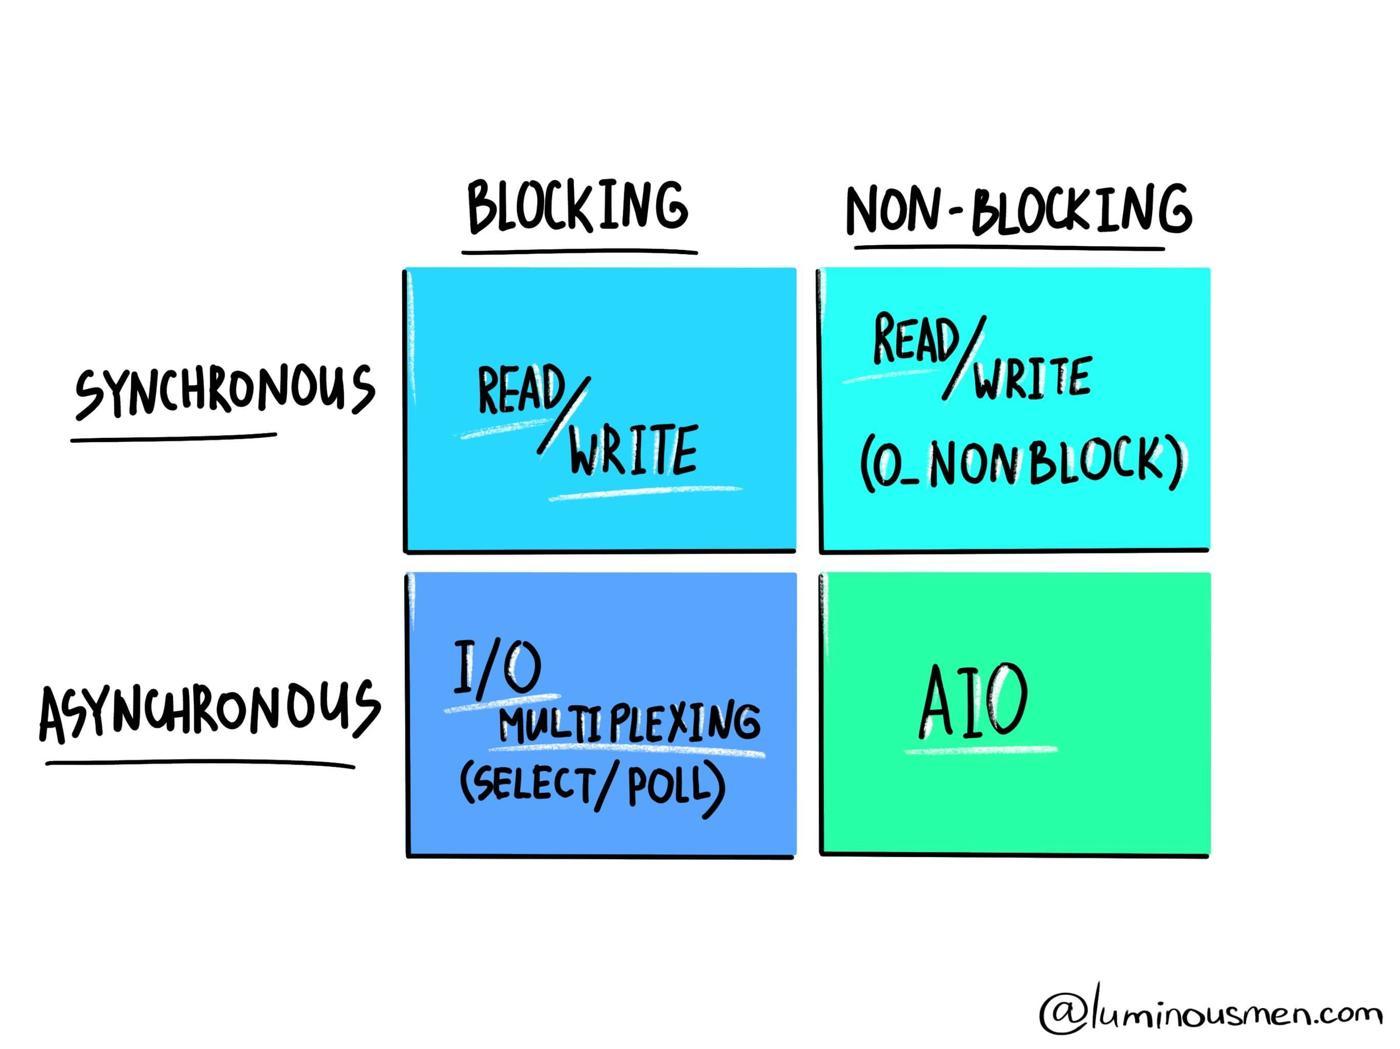 BLOCKING
NON-BLOCKING
SYNCHRONOUS
READ/
WRITE
READ/
WRITE
(O_NONBLOCK)
ASYNCHRONOUS
I/O
MULTIPLEXING
(SELECT/POLL)
AIO
@luminousmen.com